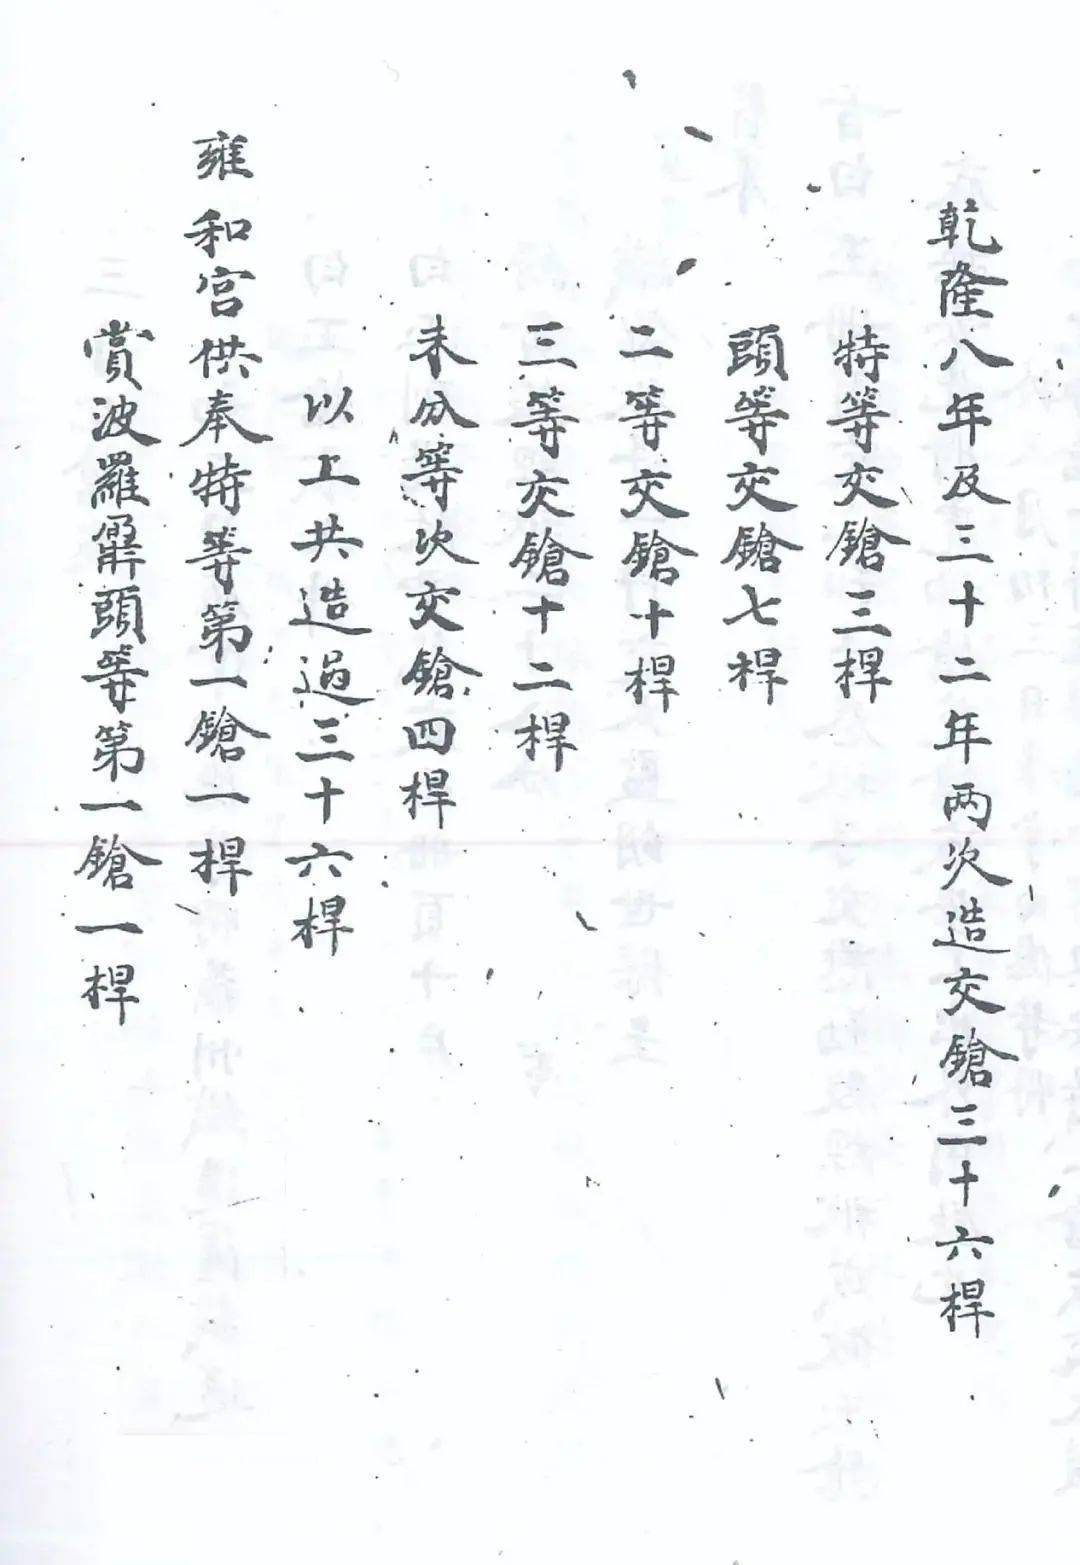 乾隆八年及三十二年两次造交鎗三十六桿
特等交鎗三桿
頭等交鎗七桿
二等交鎗十桿
三等交鎗十二桿
未分等次交鎗四桿
以上共造過三十六桿
雍和宮供奉特等第一鎗一桿
賞波羅鼐頭等第一鎗一桿